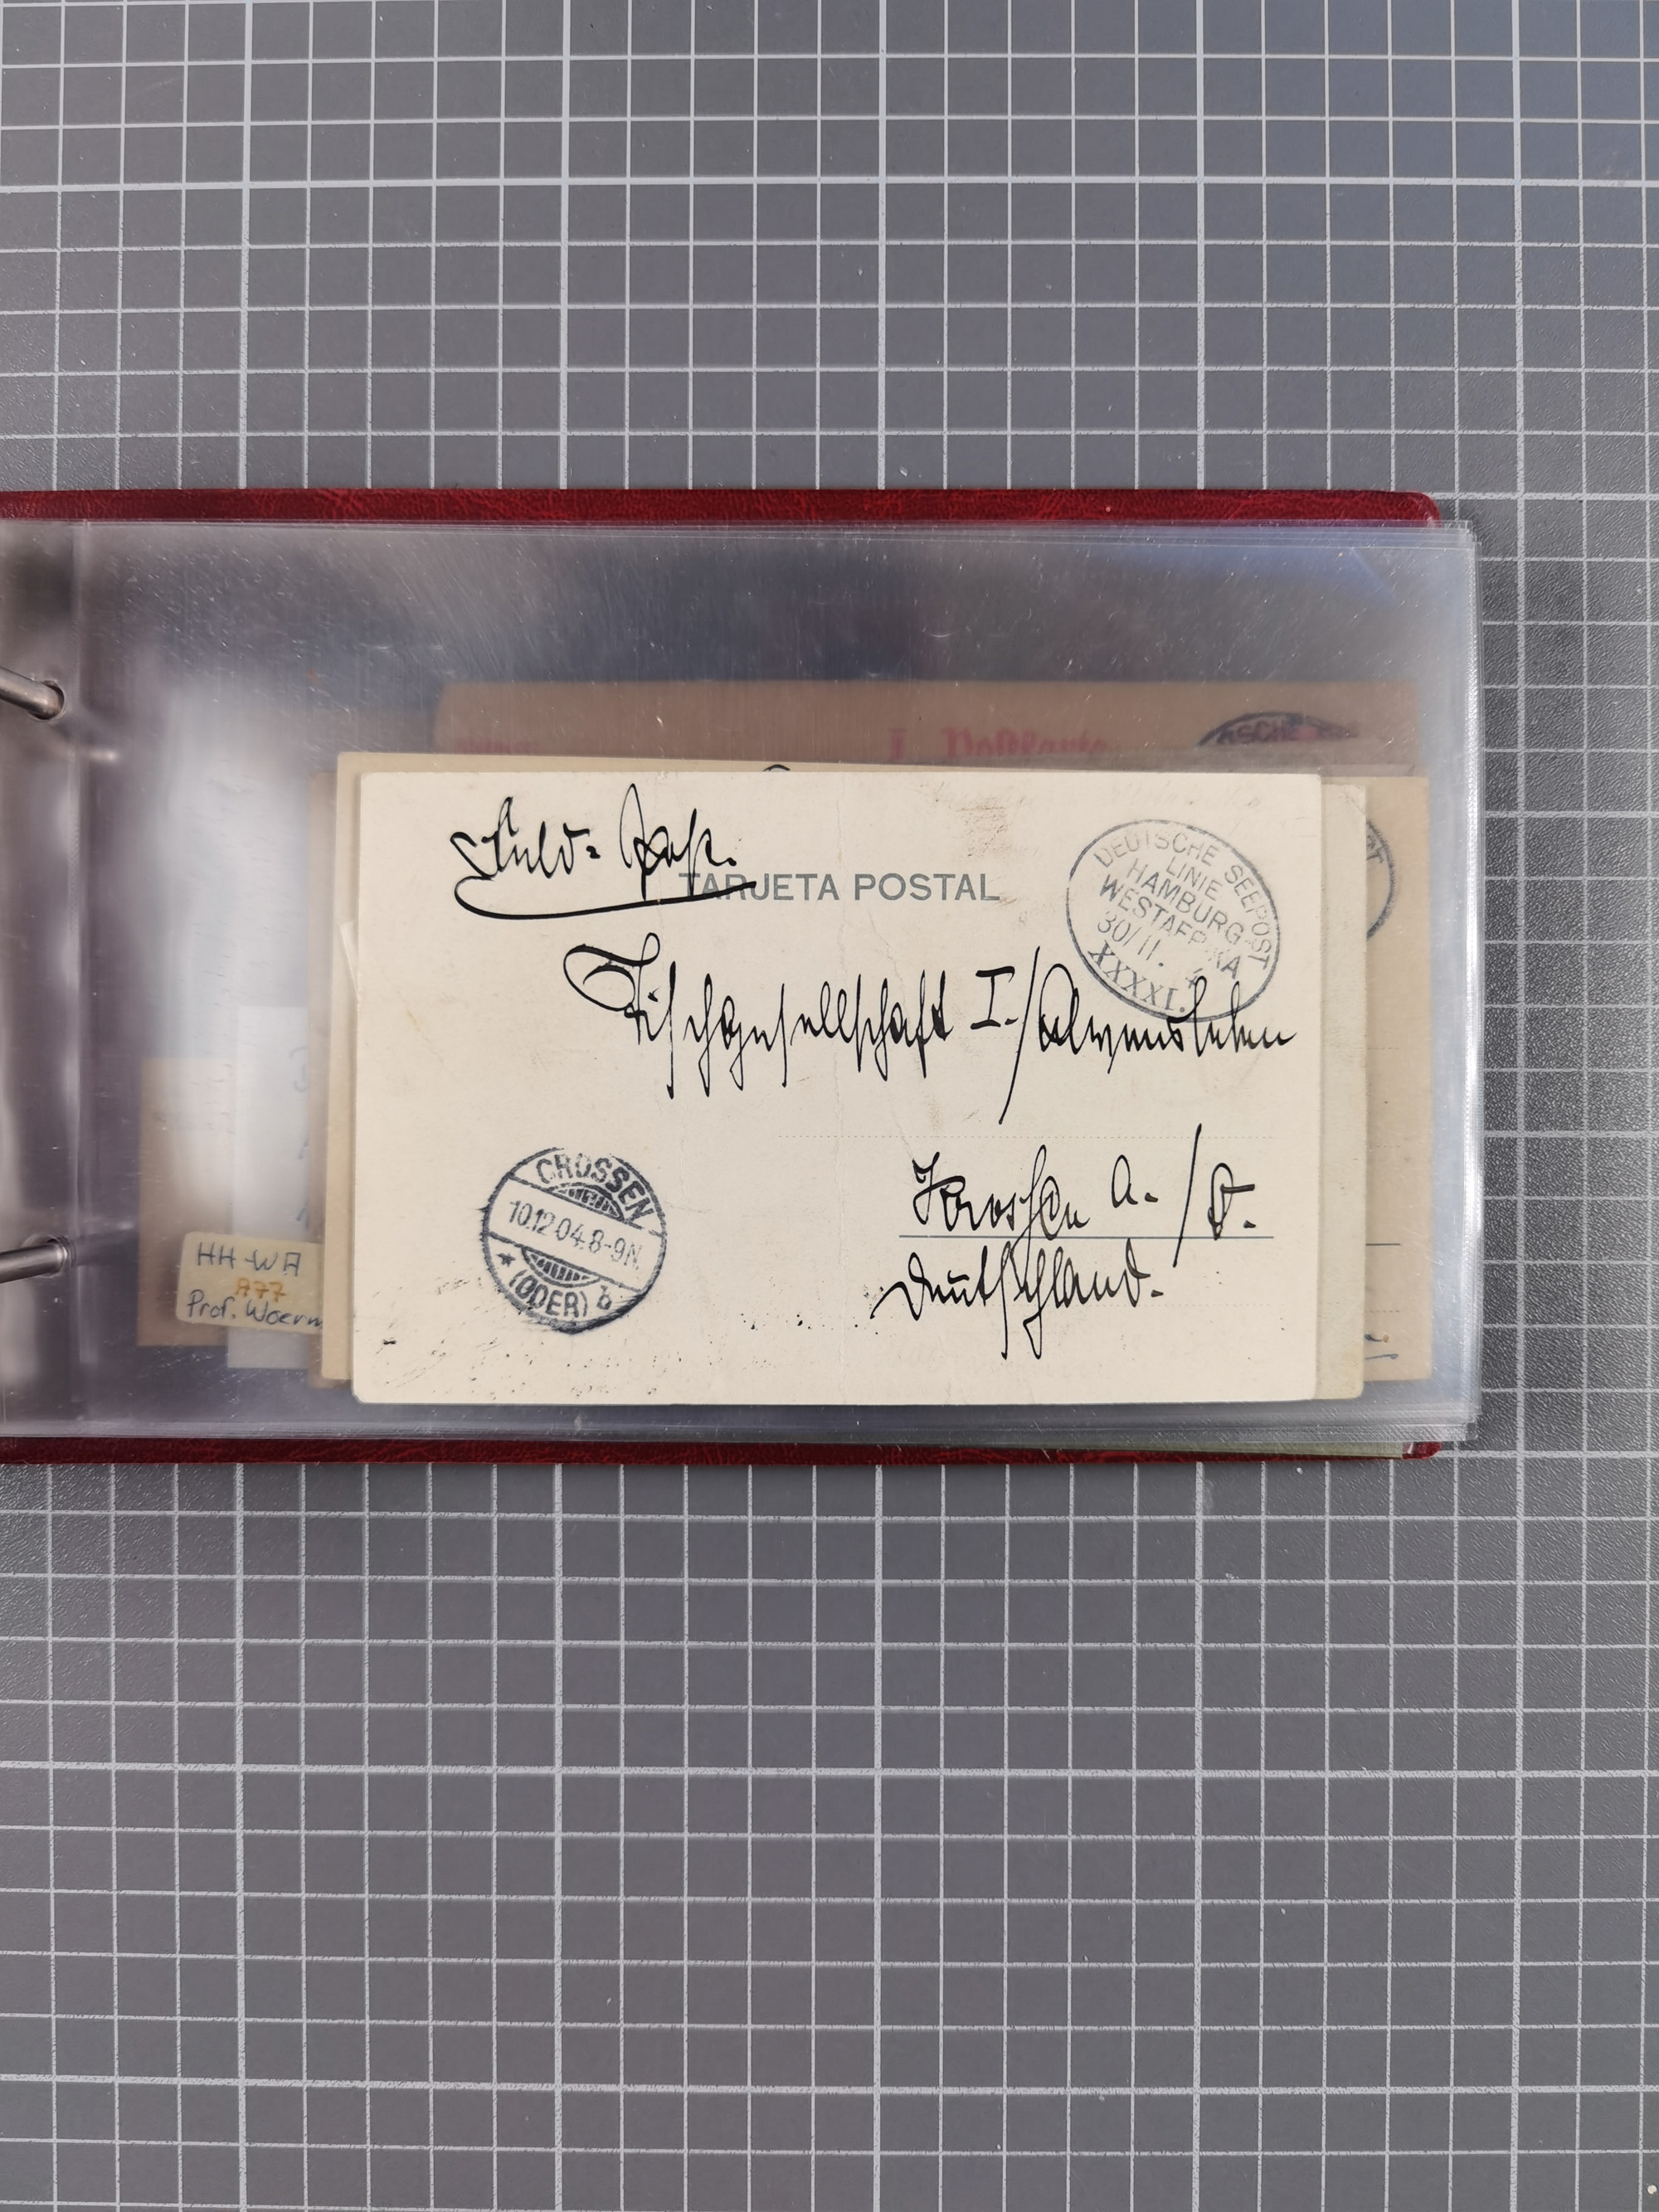 Feld= Post.
TARJETA POSTAL
DEUTSCHE SEEPOST
LINIE
HAMBURG-
WESTAFRIKA
30/11. 4
XXXXI.
Tischgesellschaft I./Alvensleben
Krossen a./O.
Deutschland.
CROSSEN
10.12.04.8-9N.
* (ODER) b
HH-WA
A77
Prof. Woerm